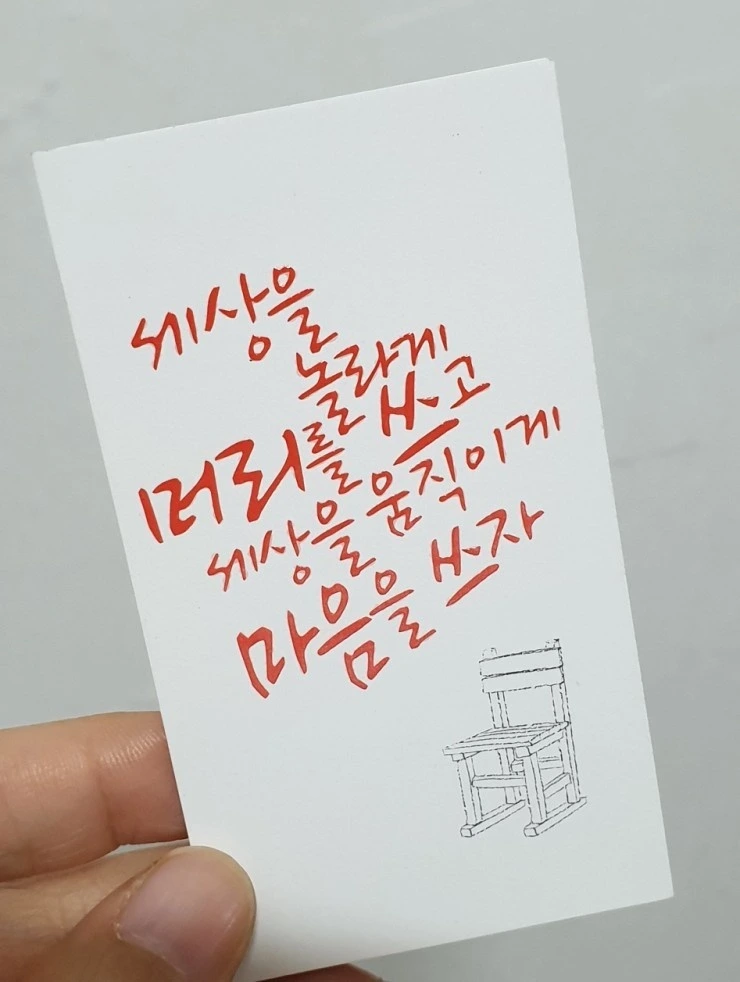 세상을
놀라게
머리를 쓰고
세상을 움직이게
마음을 쓰자